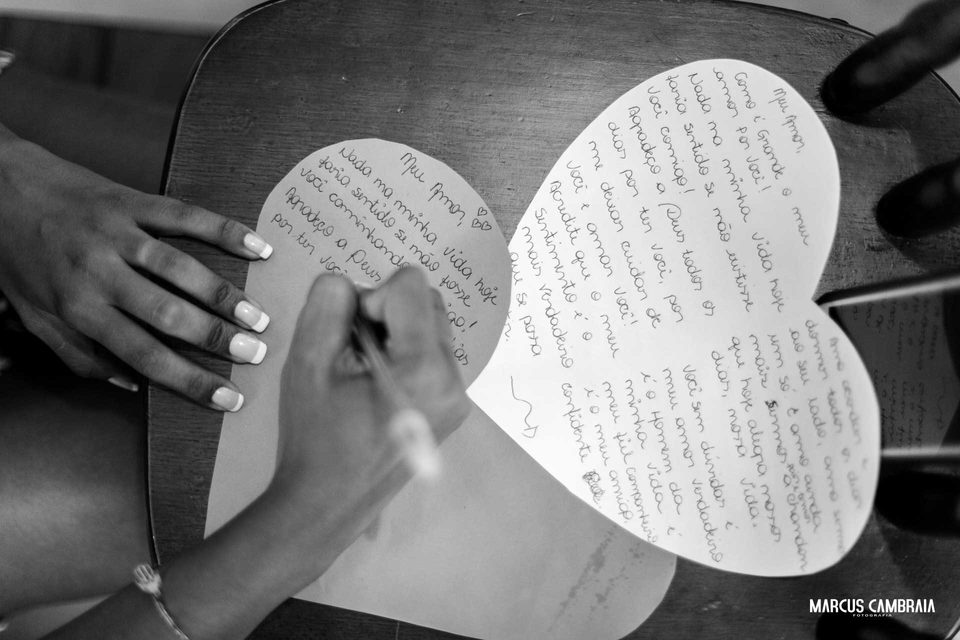 Meu Amor
Nada na minha vida hoje
faria sentido se não fosse
você caminhando
Agradeço a Deus
por ter você
dias
Meu Amor,
Como é Grande o meu
amor por você!
Nada na minha vida hoje
faria sentido se não existisse
você comigo!
Agradeço a Deus todos os
dias por ter você, por
me deixar cuidar de
você e amar você!
Acredite que o meu
sentimento é o
mais verdadeiro
que se possa
Amo acordar e
dormir todos os dias
ao seu lado, amo
um só. E amo ainda
mais
que hoje alegra nossos
dias, nossa vida.
Você sem dúvidas é
meu amor verdadeiro
é o Homem da
minha vida é
meu fiel companheiro
é o meu amigo,
confidente
MARCUS CAMBRAIA
FOTOGRAFIA